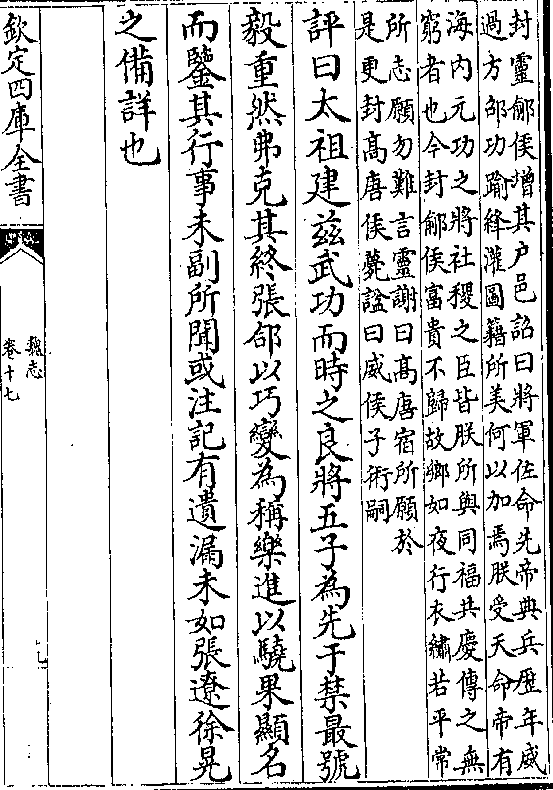 封靈鄃侯增其户邑詔曰將軍佐命先帝典兵歷年威
過方邵功踰絳灌圖籍所美何以加焉朕受天命帝有
海内元功之將社稷之臣皆朕所與同福共慶傳之無
窮者也今封鄃侯富貴不歸故鄉如夜行衣繡若平常
所志願勿難言靈謝曰髙唐宿所願於
是更封髙唐侯薨諡曰威侯子術嗣
評曰太祖建兹武功而時之良將五子為先于禁最號
毅重然弗克其終張郃以巧變為稱樂進以驍果顯名
而鑒其行事未副所聞或注記有遺漏未如張遼徐晃
之備詳也
欽定四庫全書
魏志
卷十七